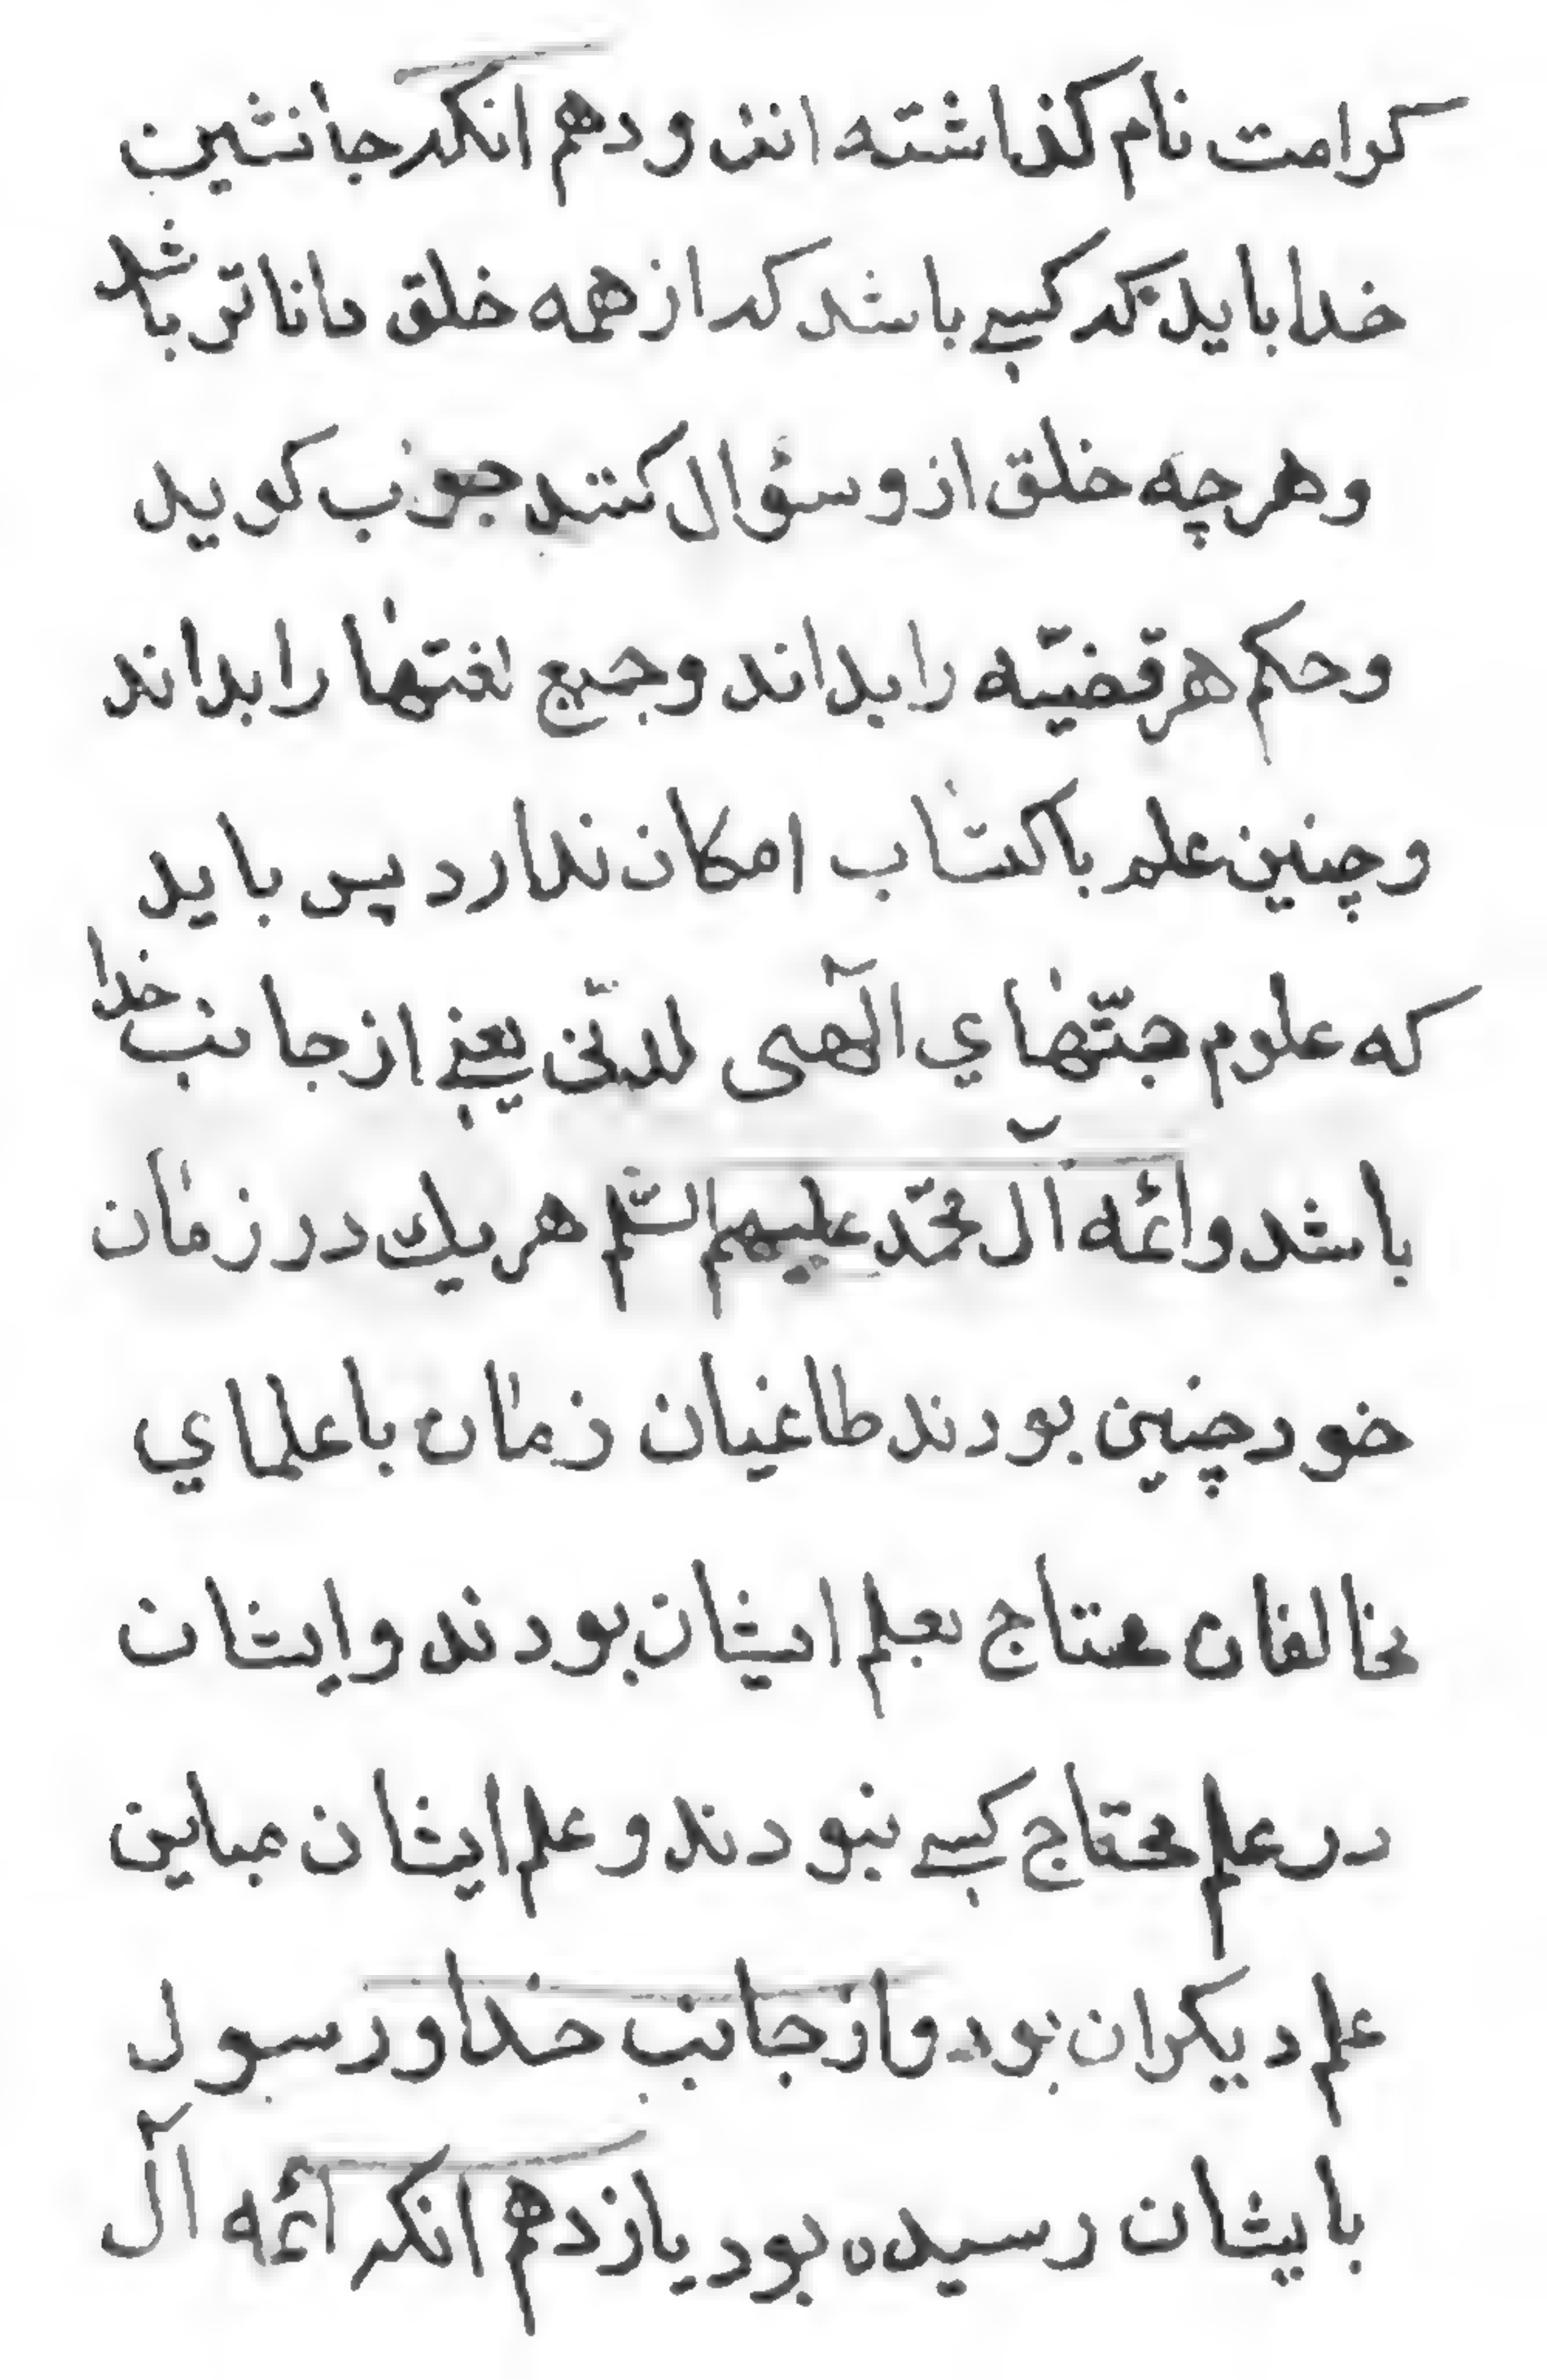 کرامت نام کذاشته اند و دهم انکه جانشین
خدا باید که کسی باشد که از همه خلق داناتر باشد
و هرچه خلق ازو سؤال کنند جواب کوید
و حکم هر قضیّه را بداند و جمیع لغتها را بداند
و چنین علم باکتساب امکان ندارد پس باید
که علوم حجّتهای آلهی لدنّی یعنی از جانب خدا
باشد و ائمه آل محمّد علیهم السّلم هر یك در زمان
خود چنین بودند طاغیان زمان با علمای
مخالفان محتاج بعلم ایشان بودند و ایشان
در علم محتاج کسی نبودند و علم ایشان مباین
علم دیکران بود و از جانب خدا و رسول
بایشان رسیده بود یازدهم انکه ائمه آل